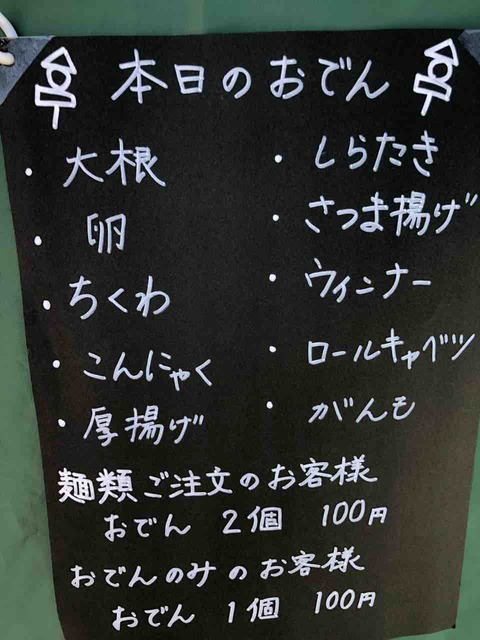 本日のおでん
・大根
・しらたき
・卵
・さつま揚げ
・ちくわ
・ウィンナー
・こんにゃく
・ロールキャベツ
・厚揚げ
・がんも
麺類ご注文のお客様
おでん 2個 100円
おでんのみのお客様
おでん 1個 100円